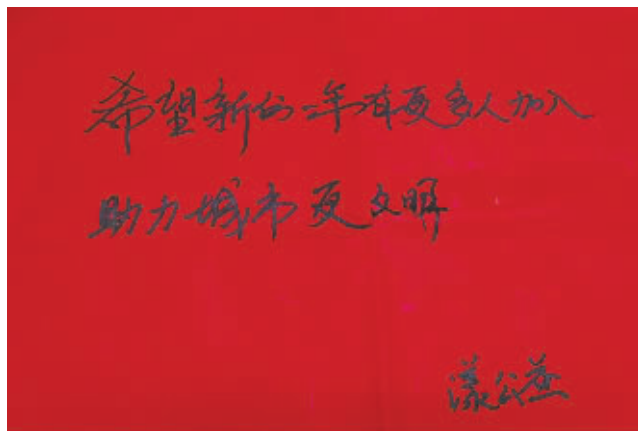 希望新的一年有更多人加入
助力城市更文明